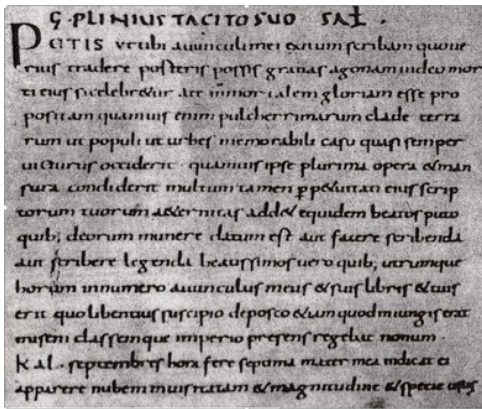 C. PLINIUS TACITO SUO SAL.
PETIS ut tibi avunculi mei exitum scribam quo ve
rius tradere posteris possis gratias ago nam video mor
ti eius si celebretur a te inmortalem gloriam esse pro
positam quamvis enim pulcherrimarum clade terra
rum ut populi ut urbes memorabili casu quasi semper
victurus occiderit quamvis ipse plurima opera & man
sura condiderit multum tamen pp&uitati eius scrip
torum tuorum a&ernitas add& equidem beatos puto
quib; deorum munere datum est aut facere scribenda
aut scribere legenda beatissimos vero quib; utrumque
horum in numero avunculus meus & suis libris & tuis
erit quo libentius suscipio deposco &iam quod iniungis erat
miseni classemque imperio presens regebat nonum
kal. septembres hora fere septima mater mea indicat ei
apparere nubem inusitatam & magnitudine & specie